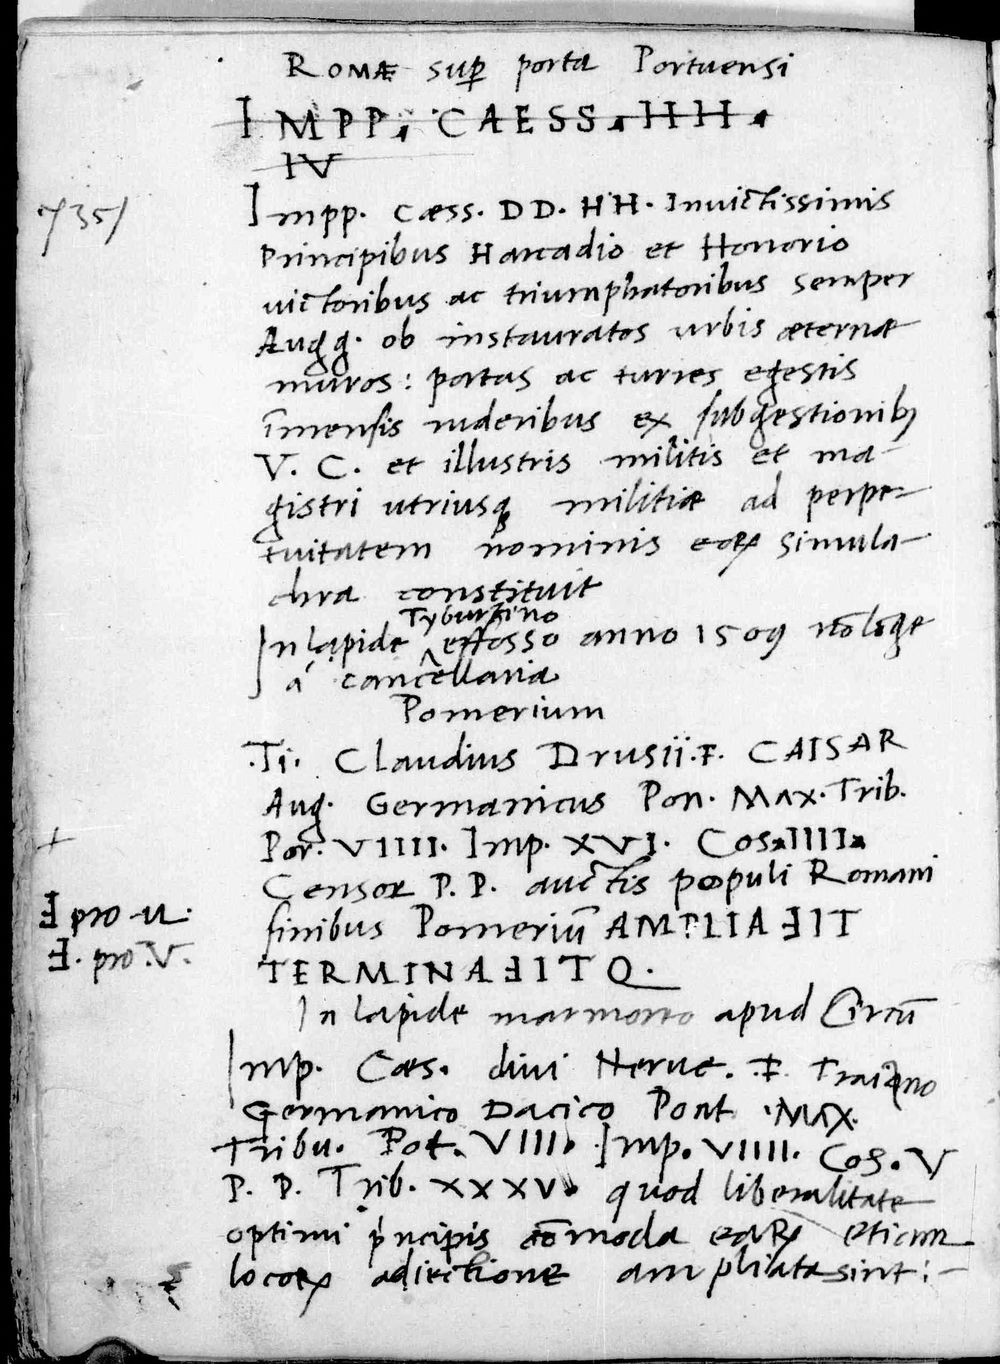 ROMÆ sup porta Portuensi
IMPP. CAESS. HH.
IV
735/
Impp. Cæss. DD. HH. Inuictissimis
Principibus Harcadio et Honorio
uictoribus ac triumphatoribus semper
Augg. ob instauratos urbis æternæ
muros: portas ac turres egestis
īmensis ruderibus ex subgestionibꝰ
V. C. et illustris militis et ma-
gistri utriusqꝫ militiæ ad perpe-
tuitatem nominis eoꝝ simula-
chra constituit
Tyburtino
In lapide effosso anno 1509 nō longe
á cancellaria
Pomerium
.Ti. Claudius Drusii.F. CAISAR
Aug. Germanicus Pon. Max. Trib.
+
Por. VIIII. Imp. XVI. Cos. IIII.
Censor P. P. auctis populi Romani
Ⅎ pro u.
finibus Pomeriū AMPLIAℲIT
Ⅎ. pro .V.
TERMINAℲITQ.
In lapide marmoreo apud Circū
Imp. Cæs. diui Neruæ. F. Traiano
Germanico Dacico Pont .Max.
Tribu. Pot. VIIII. Imp. VIIII. Cos. V
P. P. Trib. XXXV. quod liberalitate
optimi pncipis cōmoda eaꝝ etiam
locoꝝ adiectione ampliata sint:-